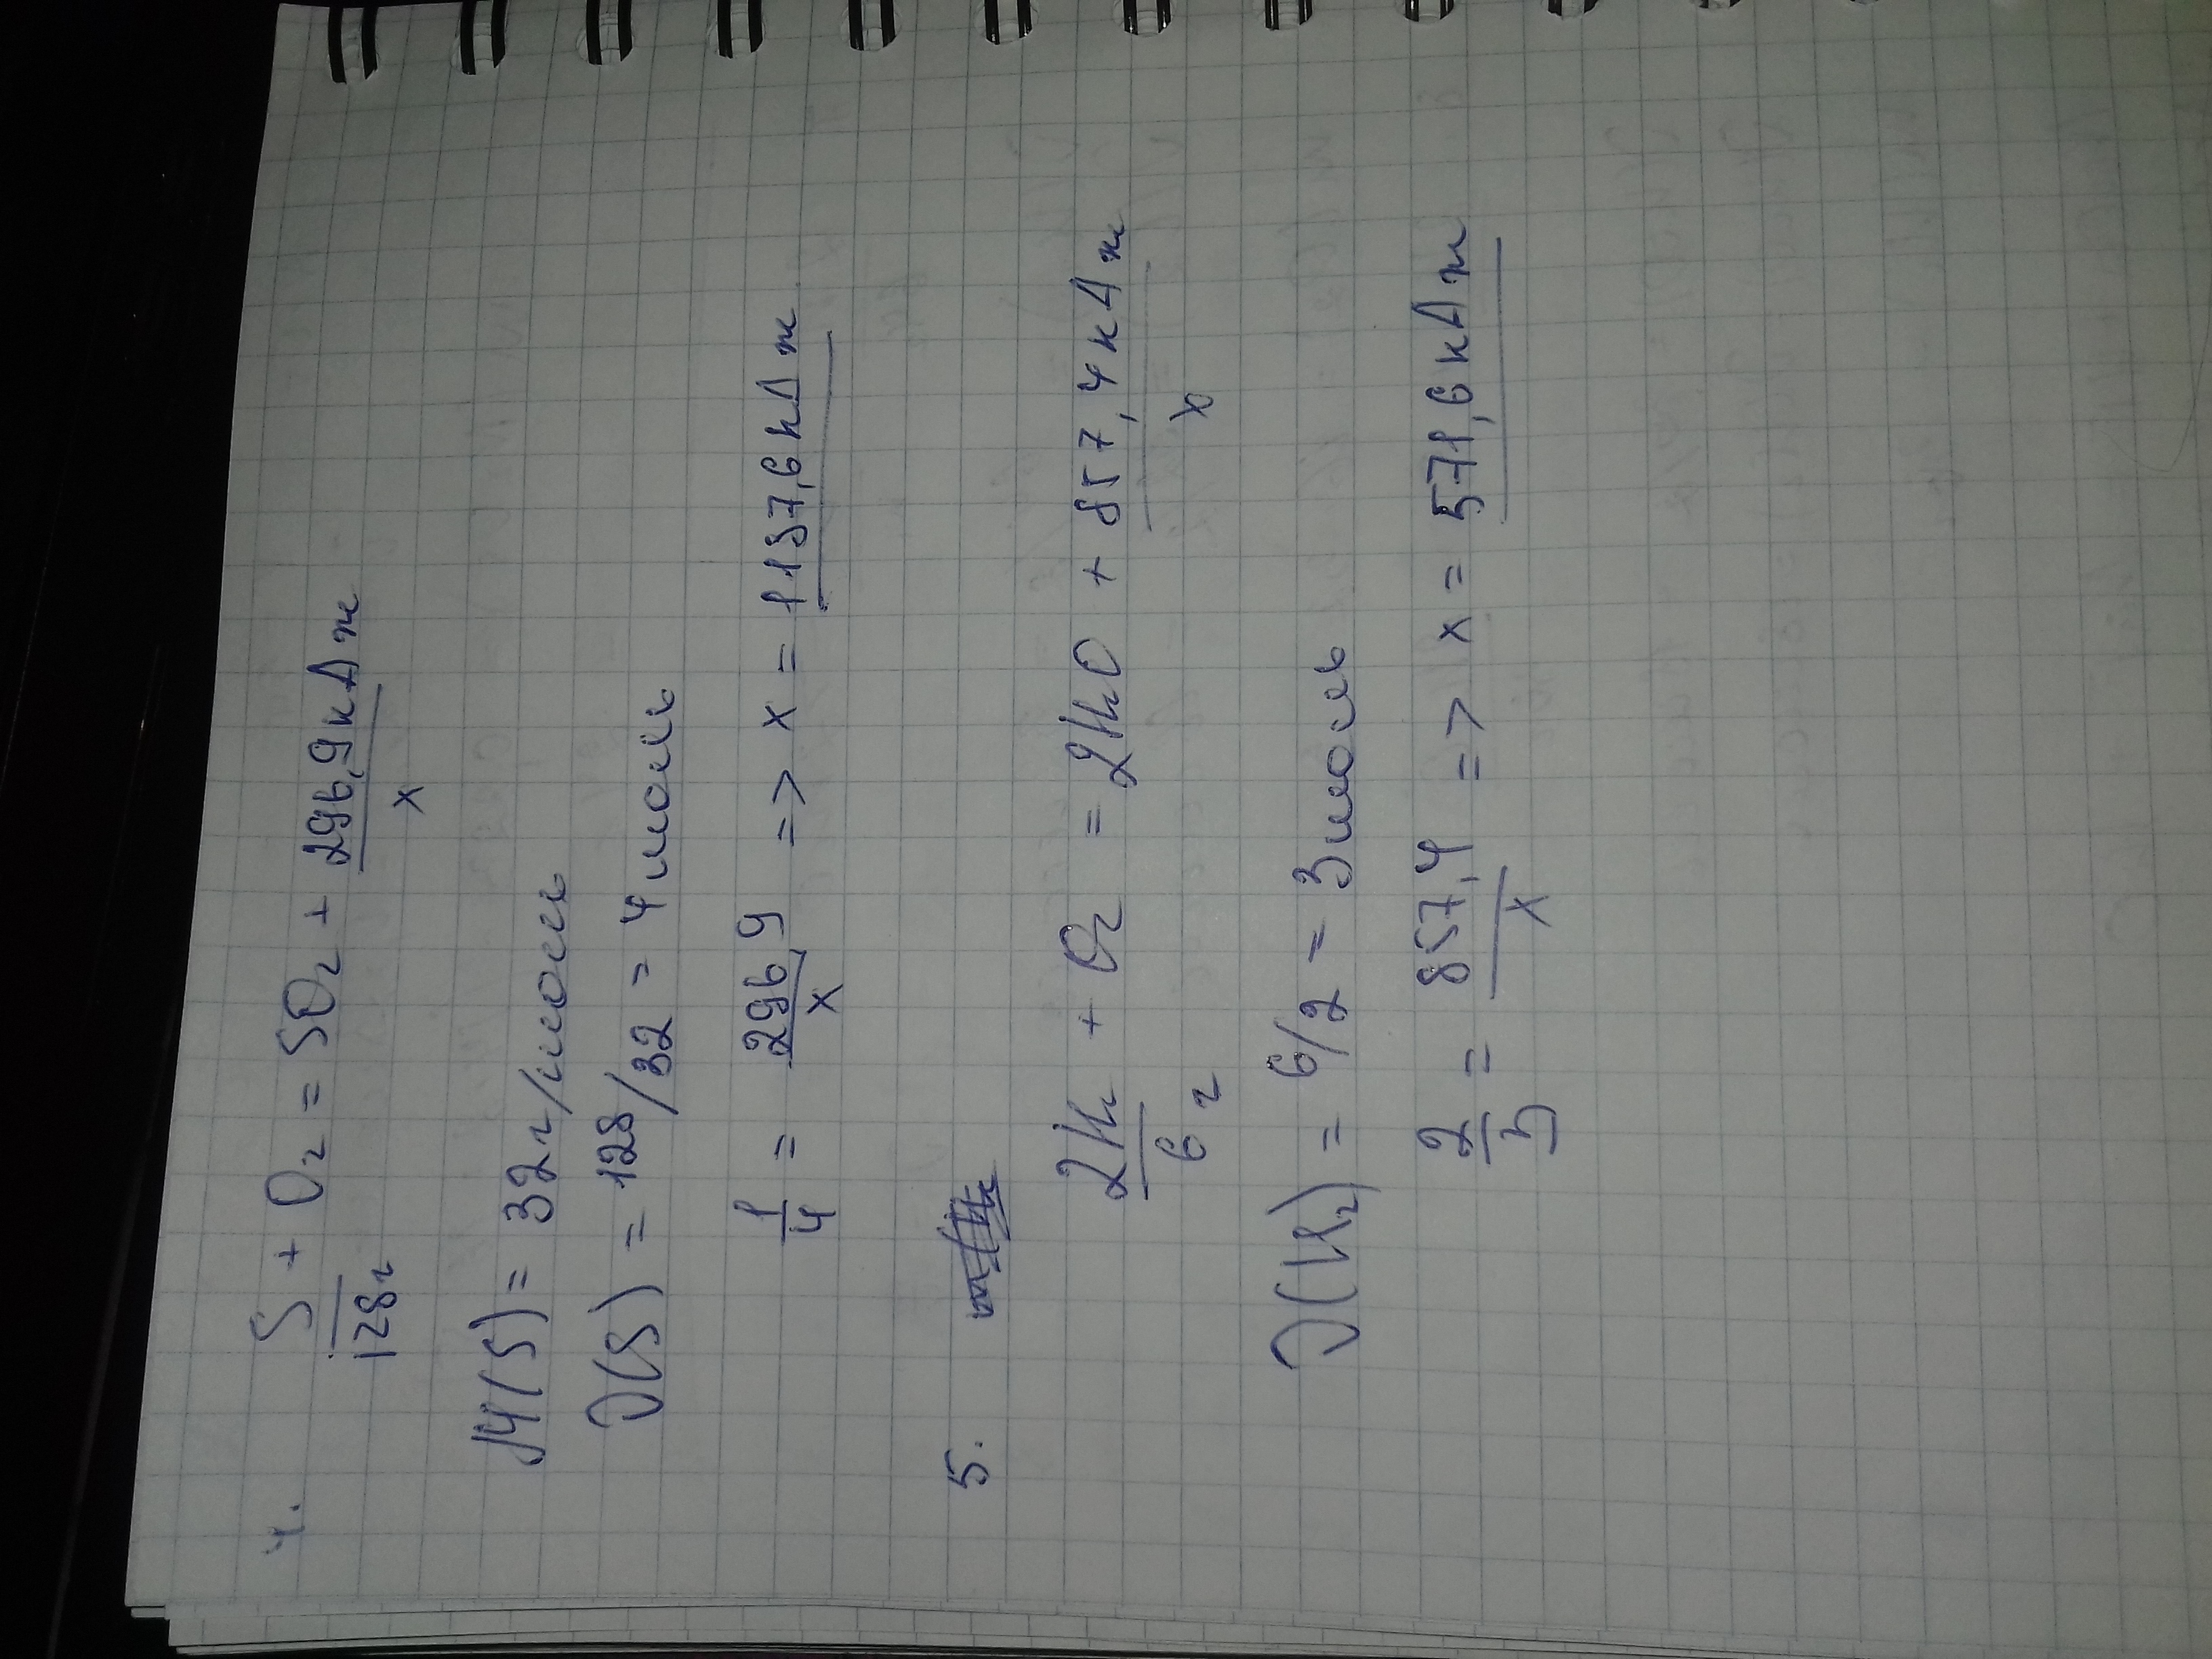 4. S + O₂ = SO₂ + 296,9 кДж
128г x
M(S) = 32г/моль
ν(S) = 128/32 = 4 моль
1/4 = 296,9/x => x = 1187,6 кДж
5.
2H₂ + O₂ = 2H₂O + 857,4 кДж
6г x
ν(H₂) = 6/2 = 3 моль
2/3 = 857,4/x => x = 571,6 кДж